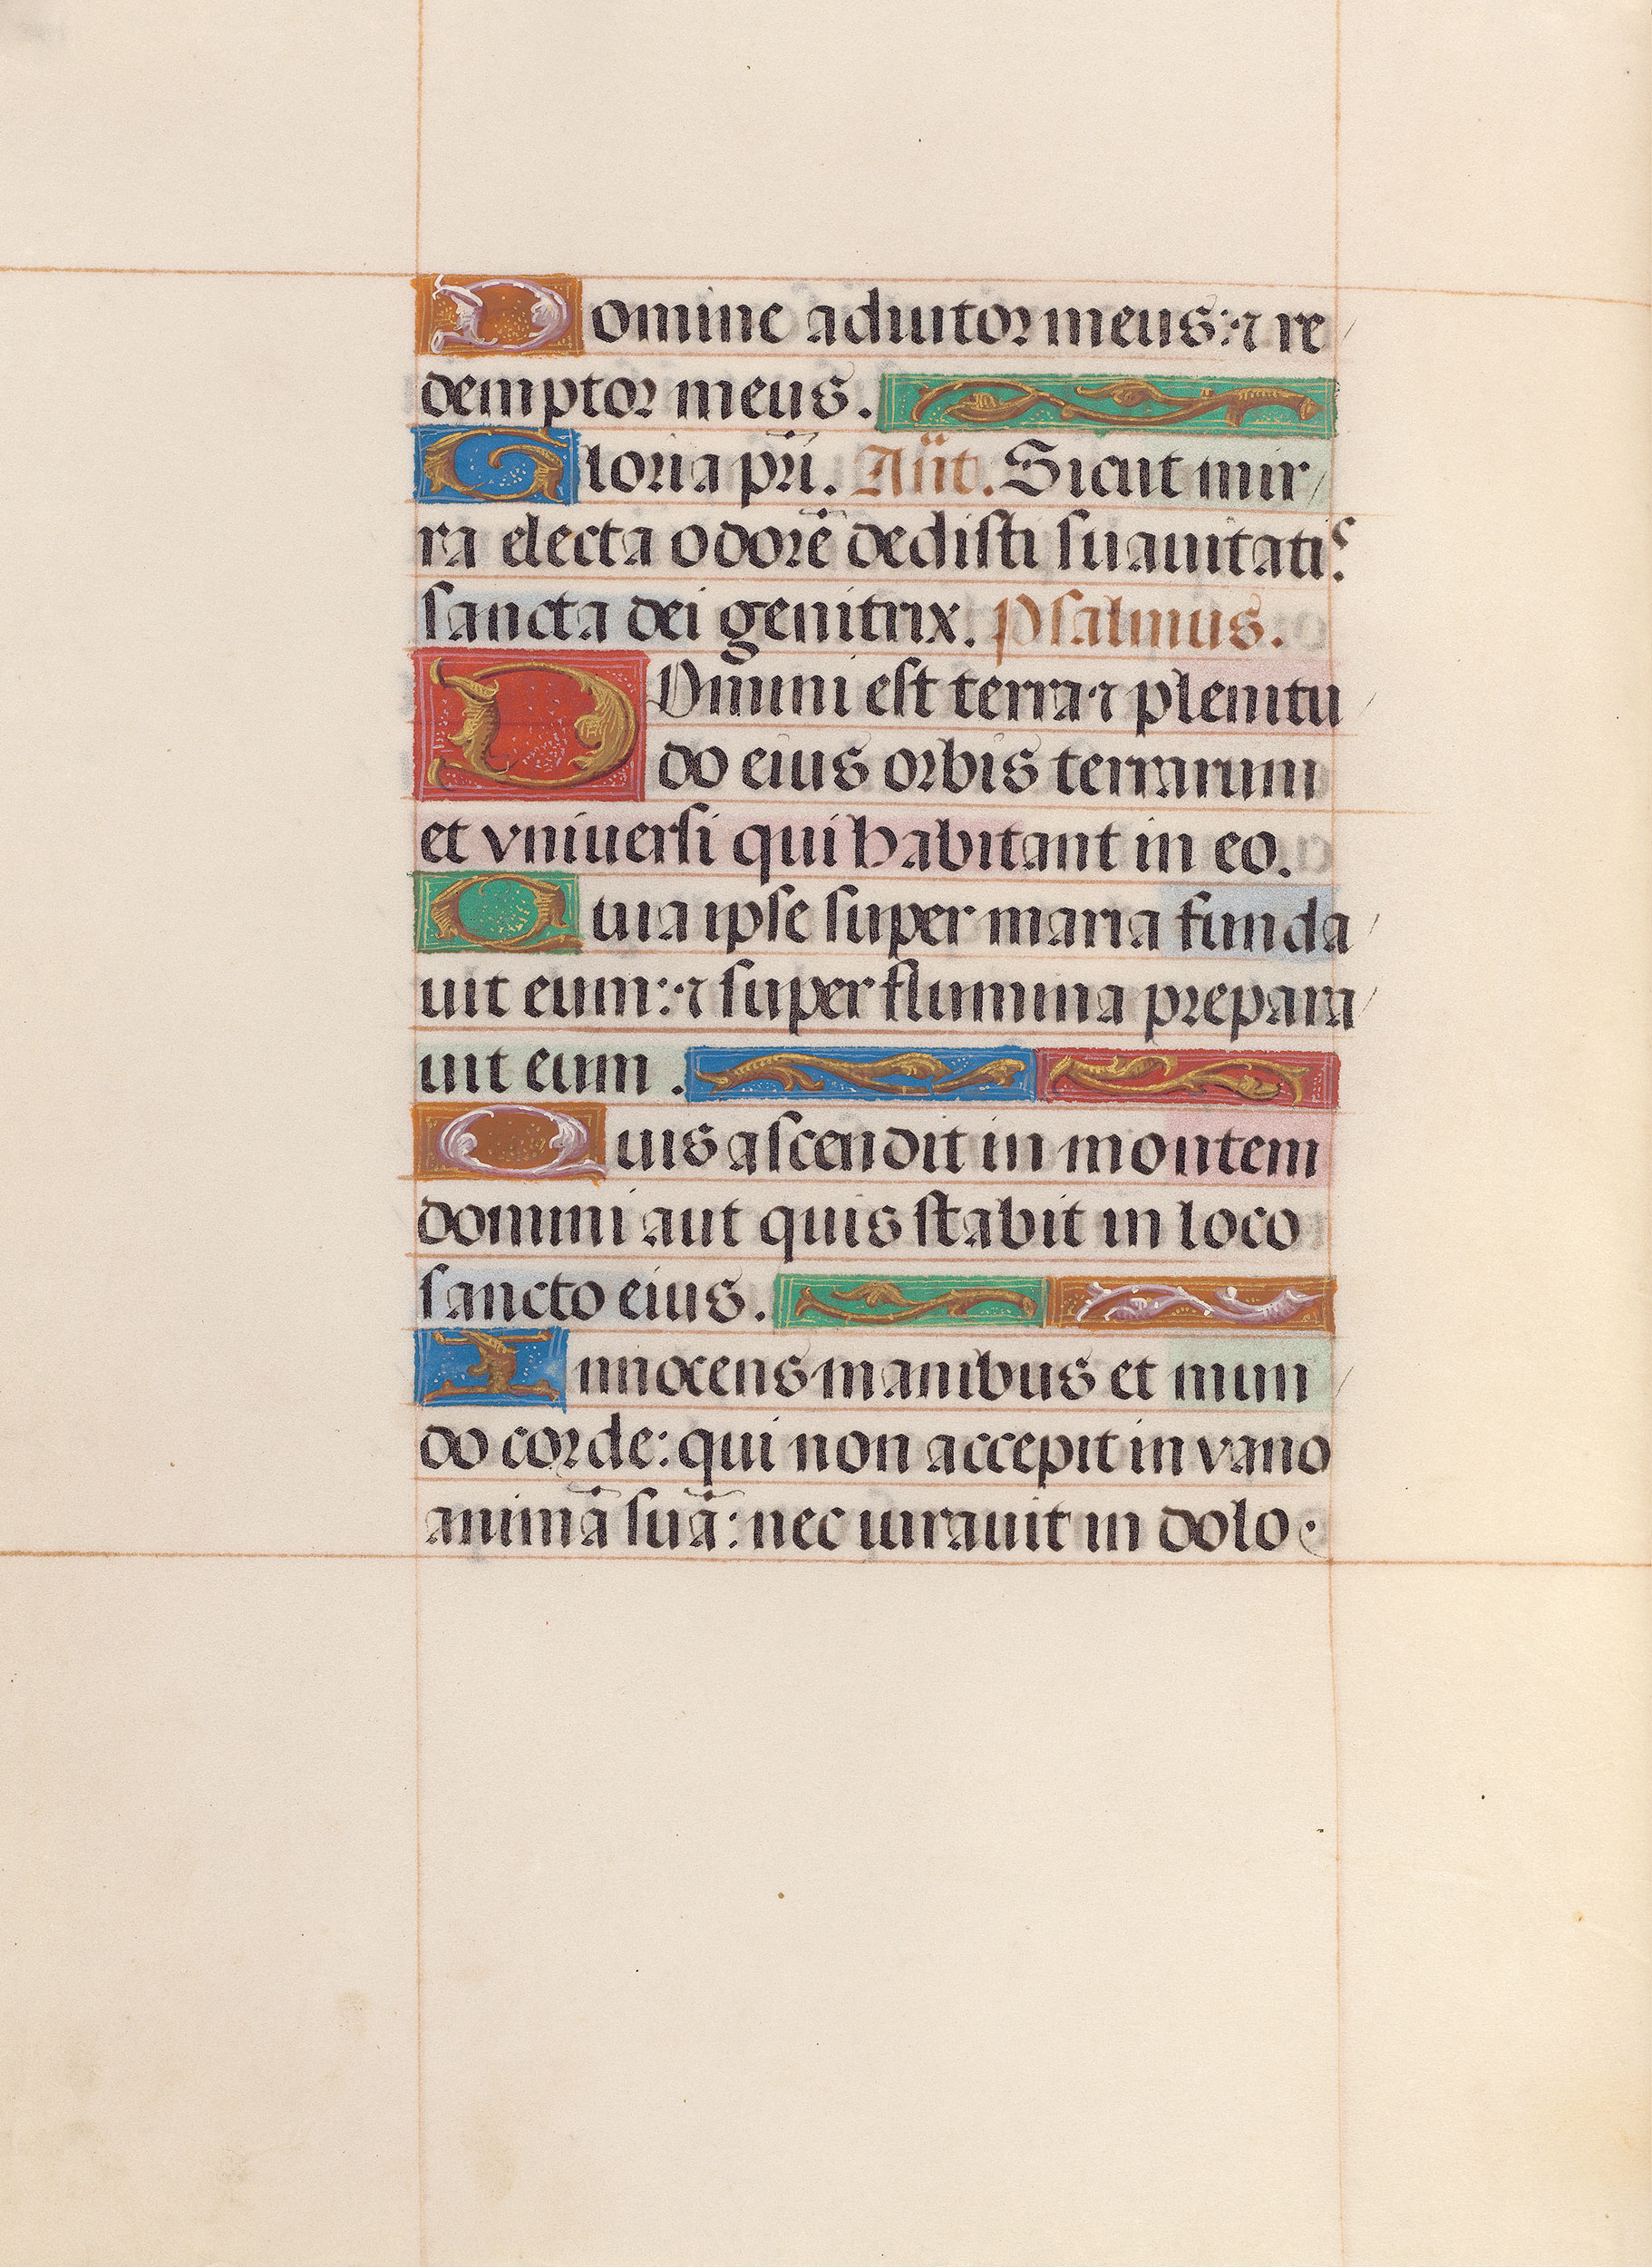 Domine adiutor meus: ⁊ re/
demptor meus.
Gloria pr̄i. An̄t. Sicut mir/
ra electa odorē dedisti suauitatis:
sancta dei genitrix. Psalmus.
DOmini est terra ⁊ plenitu/
do eius orbis terrarum
et vniuersi qui habitant in eo.
Quia ipse super maria funda/
uit eum: ⁊ super flumina prepara/
uit eum.
Quis ascendit in montem
domini aut quis stabit in loco
sancto eius.
Innocens manibus et mun/
do corde: qui non accepit in vano
animā suā: nec iurauit in dolo